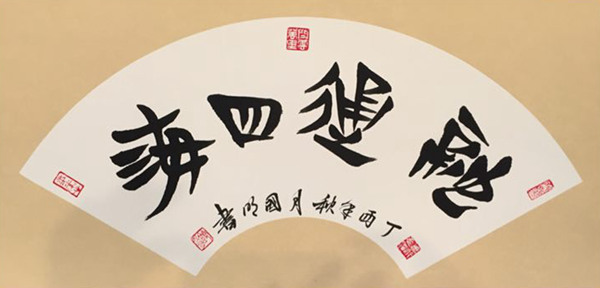 融通四海
丁酉年秋月國明書